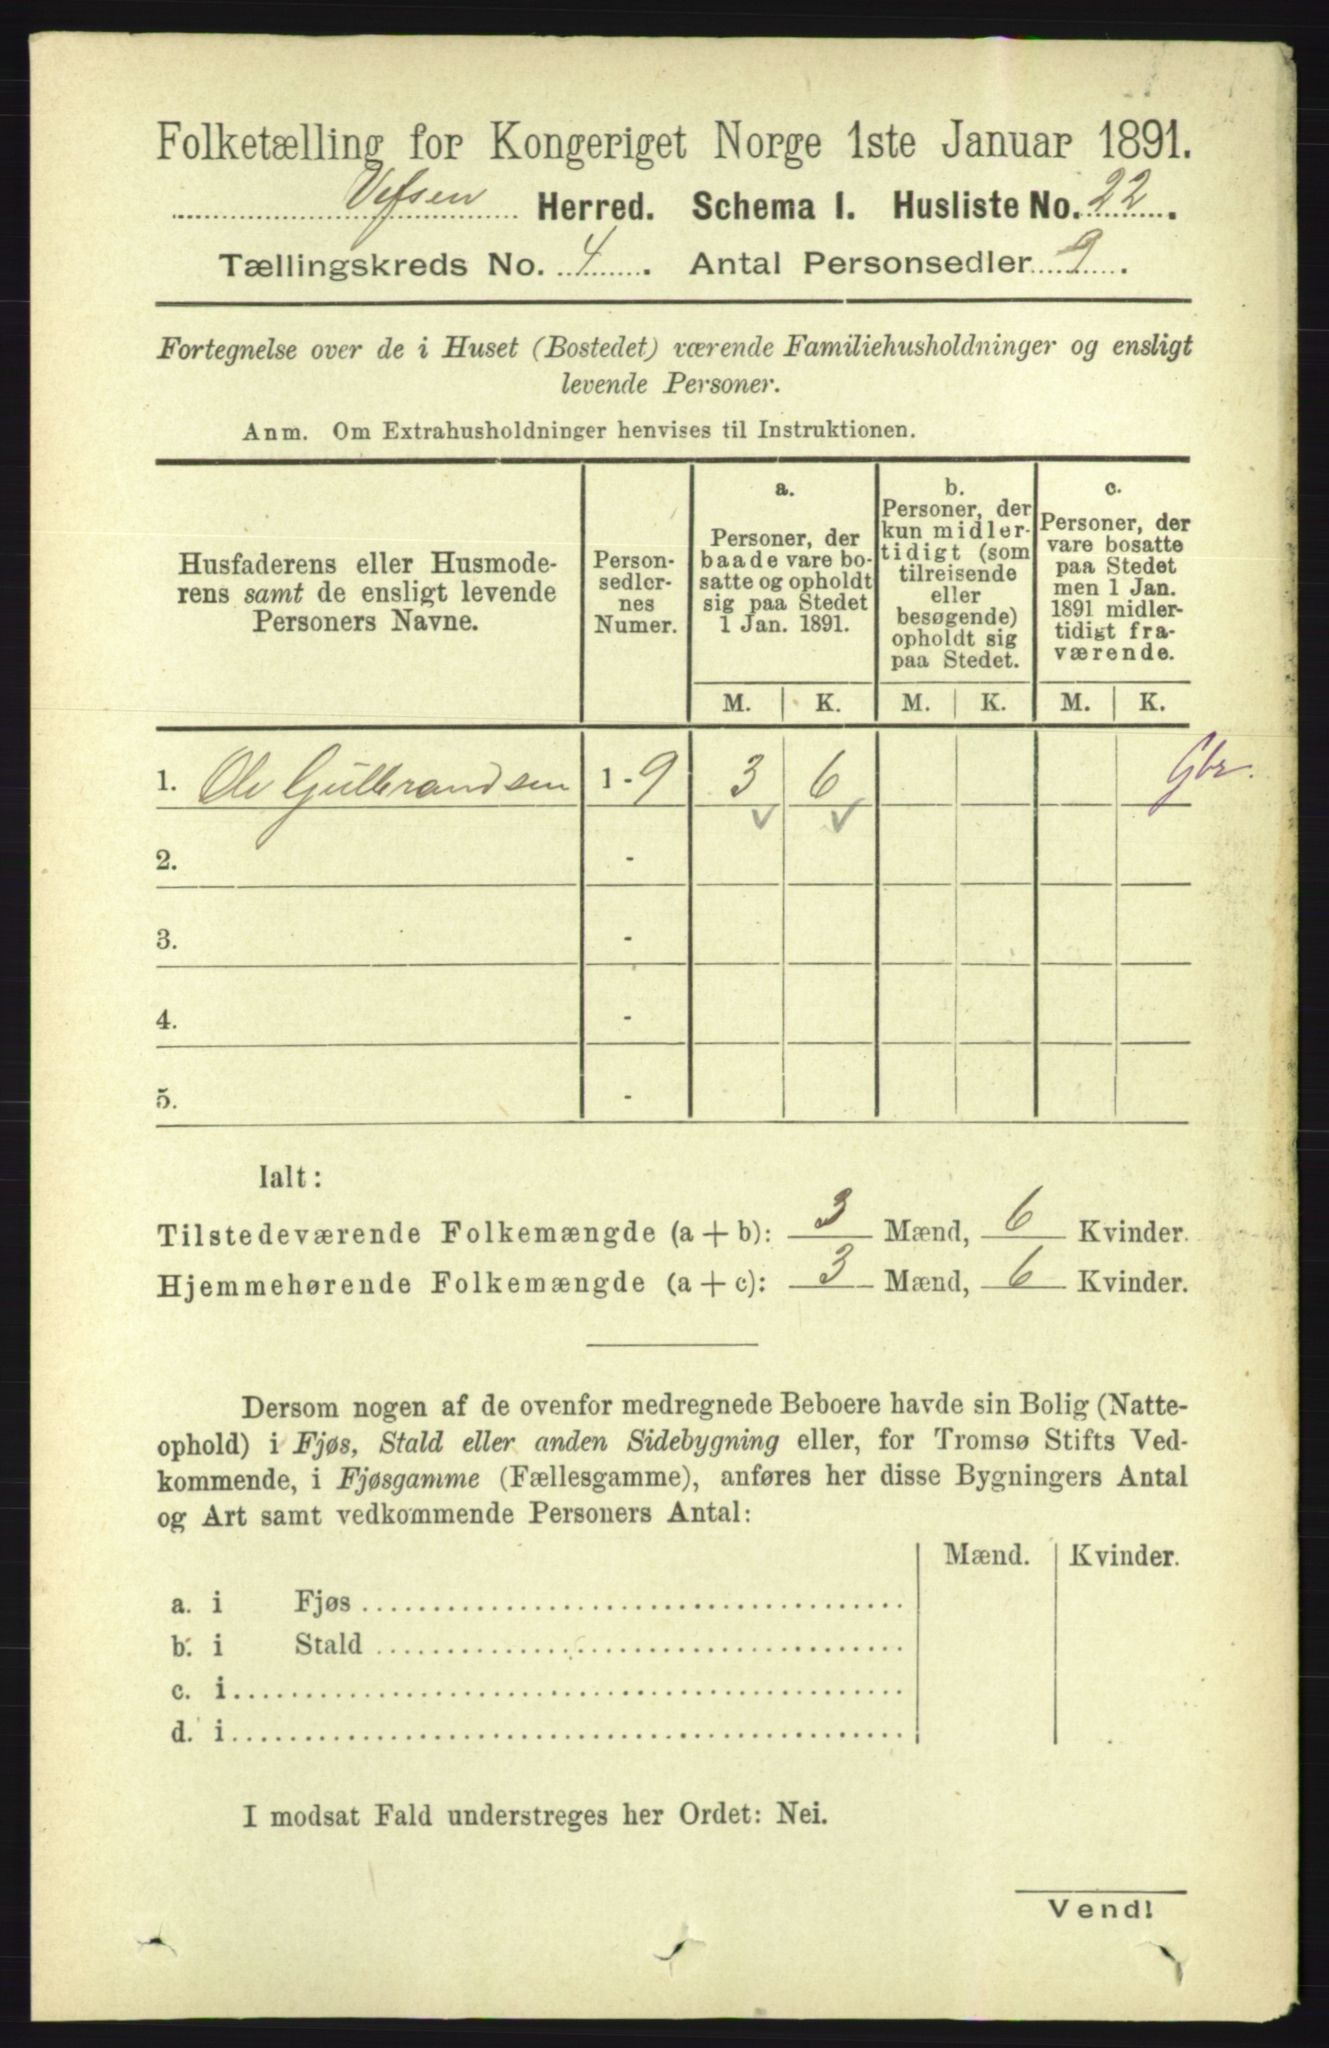 Folketælling for Kongeriget Norge 1ste Januar 1891.
Vefsen Herred. Schema I. Husliste No. 22.
Tællingskreds No. 4. Antal Personsedler 9.
Fortegnelse over de i Huset (Bostedet) værende Familiehusholdninger og ensligt
levende Personer.
Anm. Om Extrahusholdninger henvises til Instruktionen.
Husfaderens eller Husmode-
rens samt de ensligt levende
Personers Navne.
Person-
sedler-
nes
Numer.
a.
Personer, der
baade vare bo-
satte og opholdt
sig paa Stedet
1 Jan. 1891.
b.
Personer, der
kun midler-
tidigt (som
tilreisende
eller
besøgende)
opholdt sig
paa Stedet.
c.
Personer, der
vare bosatte
paa Stedet
men 1 Jan.
1891 midler-
tidigt fra-
værende.
M. K. M. K. M. K.
1. Ole Gulbrandsen 1 - 9 3 6 Gbr.
2. -
3. -
4. -
5. -
Ialt:
Tilstedeværende Folkemængde (a + b): 3 Mænd, 6 Kvinder.
Hjemmehørende Folkemængde (a + c): 3 Mænd, 6 Kvinder.
Dersom nogen af de ovenfor medregnede Beboere havde sin Bolig (Natte-
ophold) i Fjøs, Stald eller anden Sidebygning eller, for Tromsø Stifts Ved-
kommende, i Fjøsgamme (Fællesgamme), anføres her disse Bygningers Antal
og Art samt vedkommende Personers Antal:
Mænd. Kvinder.
a. i Fjøs
b. i Stald
c. i
d. i
I modsat Fald understreges her Ordet: Nei.
Vend!